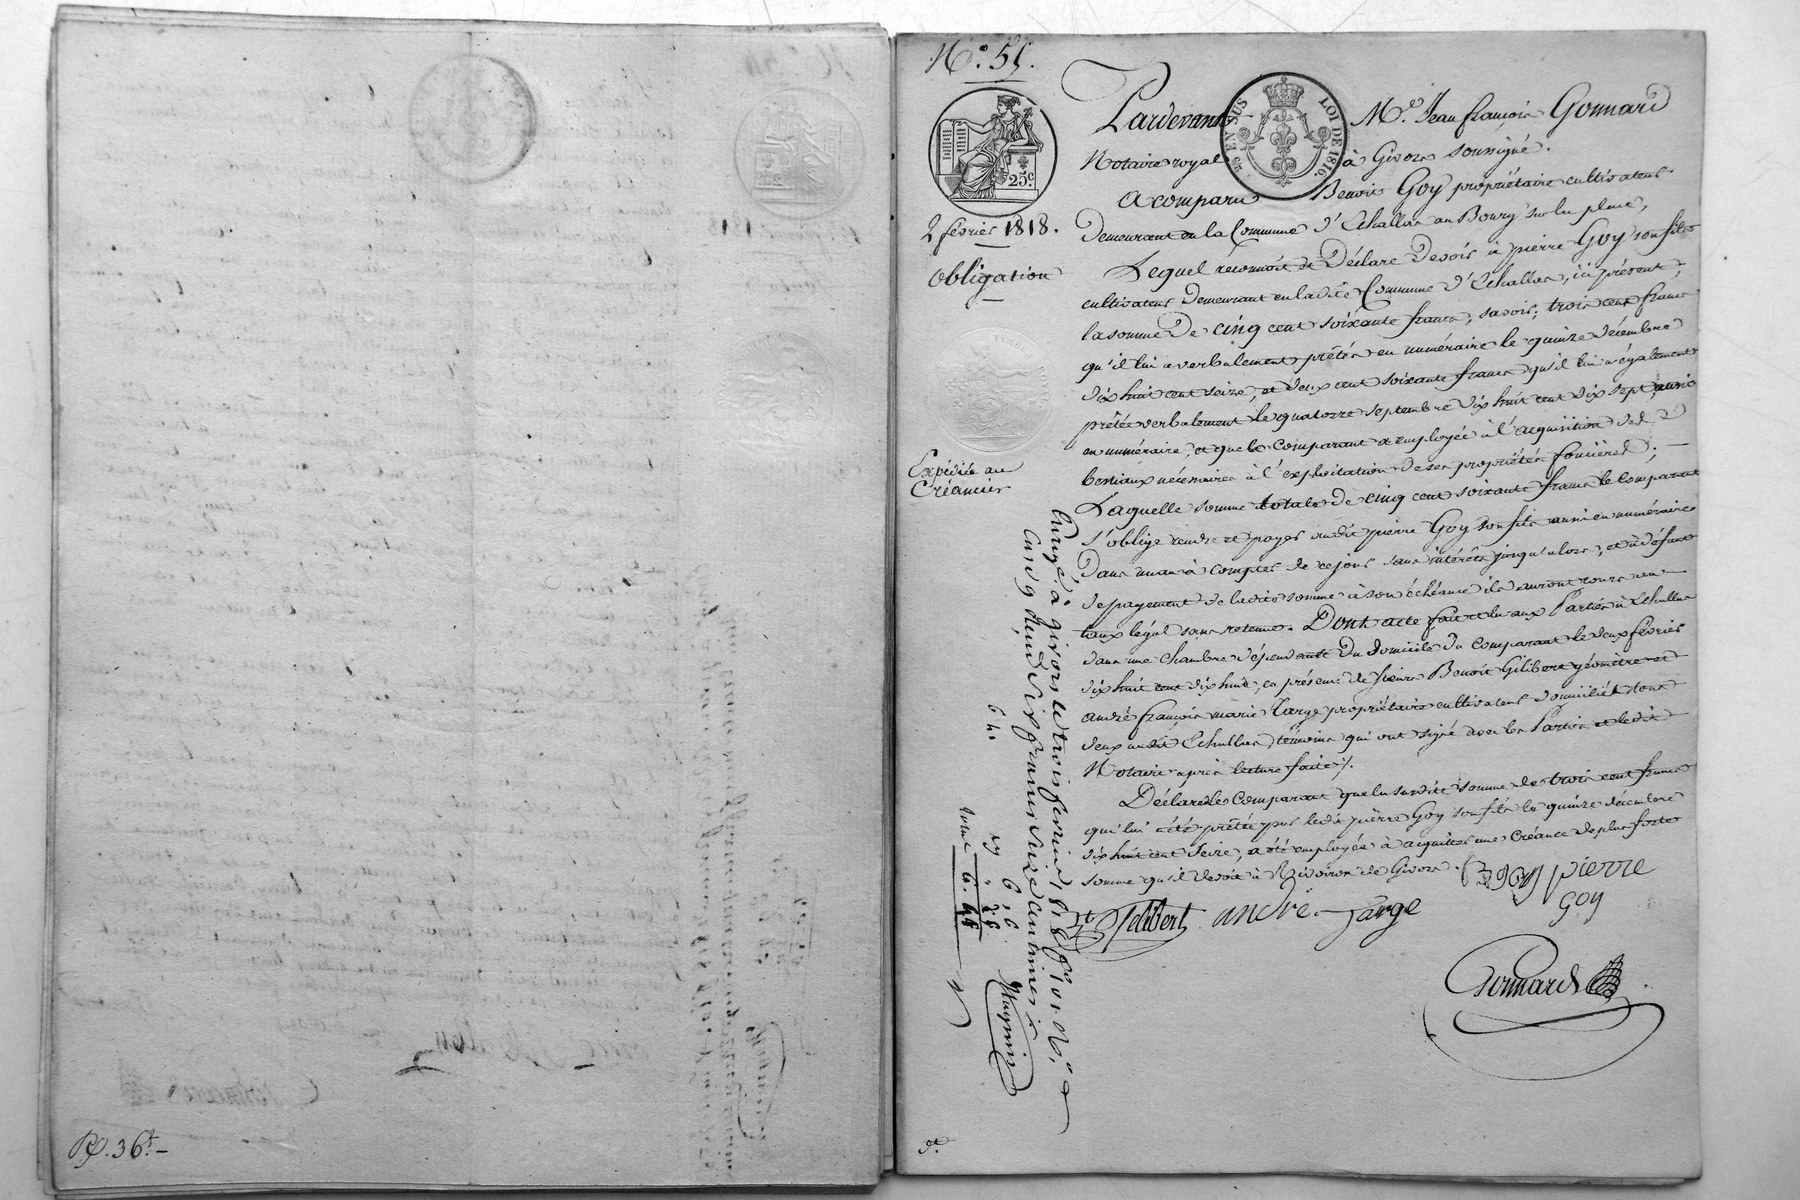 R.f. 36.t
N.o 55.
25 EN SUS
LOI DE 1816.
25.c
2 février 1818.
Obligation
Expédié au
Créancier
Pardevant M.e Jean françois Gonnard
Notaire royal à Givors soussigné.
A comparu Benoit Goy propriétaire cultivateur
demeurant en la Commune d'Echallas au Bourg sur la place,
Lequel reconnoit et Déclare Devoir à pierre Goy son fils
cultivateur demeurant en ladite Commune d'Echallas, ici présent,
la somme De cinq cent soixante francs, savoir; trois cent francs
qu'il lui a verbalement prêtés en numéraire le quinze décembre
dix huit cent seize, et deux cent soixante francs qu'il lui a également
prêtée verbalement le quatorze septembre dix huit cent dix sept, aussi
en numéraire, et que le comparant a employée à l'acquisition des
bestiaux nécessaires à l'exploitation de ses propriétés foncières;
Laquelle somme totale de cinq cent soixante francs le comparant
s'oblige rendre et payer audit pierre Goy son fils aussi en numéraire
Dans un an à compter de ce jour sans intérêts jusqu'alors, et à défaut
de payement de ladite somme à son échéance ils auront cours au
taux légal sans retenue. Dont acte fait et lu aux Parties à Echallas
dans une chambre dépendante du domicile du comparant le deux février
dix huit cent dix huit, en présence de sieurs Benoit Gilibert géomètre et
andré françois marie Large propriétaire cultivateur domiciliés tous
deux audit Echallas témoins qui ont signé avec les Parties et ledit
Notaire après lecture faite ./.
Déclare le comparant que la susdite somme de trois cent francs
qui lui a été prêtée par ledit pierre Goy son fils le quinze décembre
dix huit cent seize, a été employée à acquitter une Créance de plus forte
somme qu'il devoit à Rivoiron de Givors.
B goy pierre
goy
Bt Gelibert andré Large
Gonnard
Enregé. à givors le trois fevrier 1818 f.o 101 N.o 9
six francs seize centimes
6,16
6.16